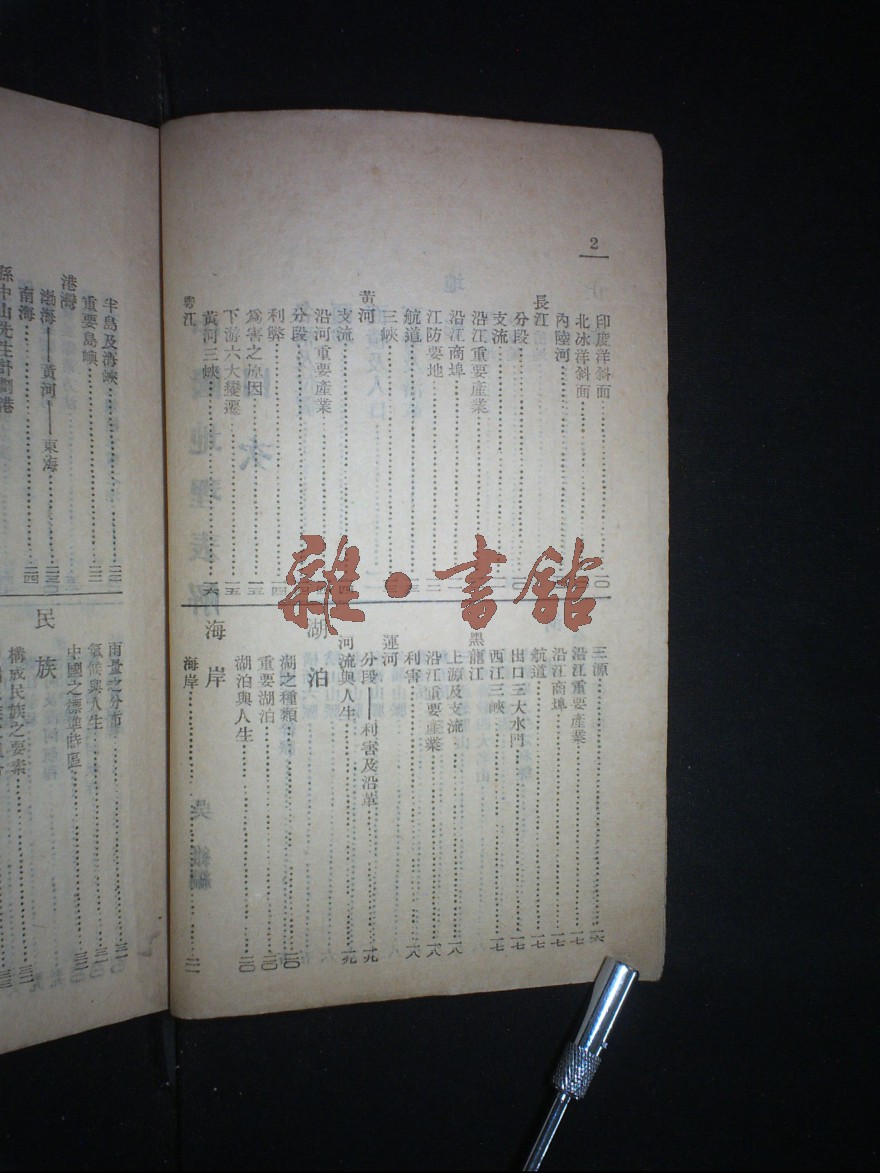 2
印度洋斜面……一〇
北冰洋斜面
內陸河
長江
分段……一〇
支流
沿江重要產業
沿江商埠
江防要地……一二
航道
三峽
黃河
支流……一四
沿河重要產業
分段
利弊……一四
爲害之原因……一五
下游六大變遷……一五
黃河三峽……一六
粵江
三源……一六
沿江重要產業……一七
沿江商埠……一七
航道……一七
出口三大水門……一七
西江三峽……一七
黑龍江
上源及支流……一八
沿江重要產業……一八
利害……一八
運河
分段——利害及沿革……一九
河流與人生……一九
湖泊
湖之種類……二〇
重要湖泊……二〇
湖泊與人生……二〇
海岸
海岸……二一
半島及海峽……二二
重要島嶼……二二
港灣
渤海——黃河——東海……二三
南海……二四
孫中山先生計劃港
雨量之分布……三〇
氣候與人生……三〇
中國之標準時區
民族
構成民族之要素
雜·書館
地理表解